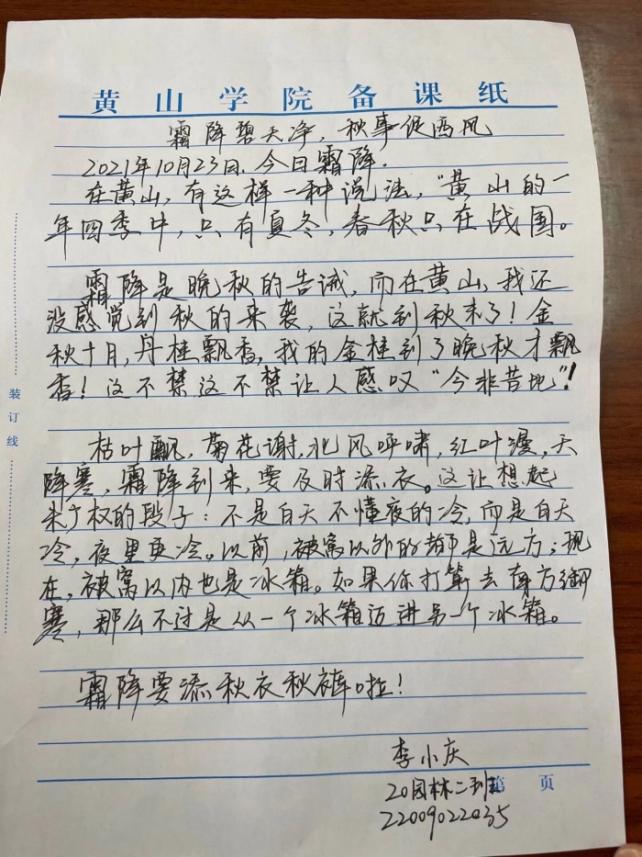 黄山学院备课纸
霜降碧天净，秋事促西风
2021年10月23日，今日霜降．
在黄山，有这样一种说法，“黄山的一
年四季中，只有夏冬，春秋只在战国。
霜降是晚秋的告诫，而在黄山，我还
没感觉到秋的来袭，这就到秋末了！金
秋十月，丹桂飘香，我的金桂到了晚秋才飘
香！这不禁这不禁让人感叹“今非昔地”！
枯叶飘，菊花谢，北风呼啸，红叶漫，天
降寒，霜降到来，要及时添衣。这让想起
朱广权的段子：不是白天不懂夜的冷，而是白天
冷，夜里更冷。以前，被窝以外的都是远方；现
在，被窝以内也是冰箱。如果你打算去南方御
寒，那么不过是从一个冰箱迈进另一个冰箱。
霜降要添秋衣秋裤啦！
李小庆
20园林二班
第 页
22009022035
装订线